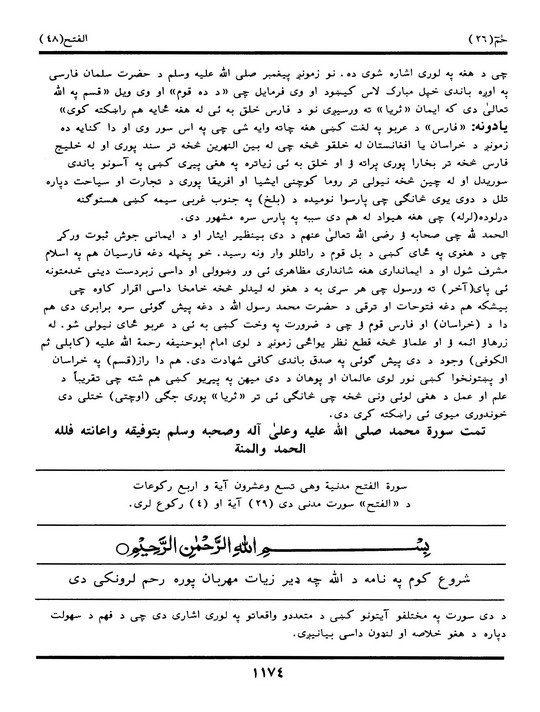 حٰمٓ (٢٦)
الفتح (٤٨)
چی د هغه په لوری اشاره شوی ده. نو زمونږ پیغمبر صلی الله علیه وسلم د حضرت سلمان فارسی
په اوږه باندی خپل مبارک لاس کیښود او وی فرمایل چی «د ده قوم» او وی ویل «قسم په الله
تعالیٰ دی که ایمان «ثریا» ته ورسیږی نو د فارس خلق به ئی له هغه ځایه هم راښکته کوی»
یادونه: «فارس» د عربو په لغت کښی هغه چاته وایه شی چی په اس سور وی او دا کنایه ده
زمونږ د خراسان یا افغانستان له خلقو څخه چی له بین النهرین څخه تر سند پوری او له خلیج
فارس څخه تر بخارا پوری پراته ؤ او خلق به ئی زیاتره په هغی پیړی کښی په آسونو باندی
سوریدل او له چین څخه نیولی تر روما کوچنی ایشیا او افریقا پوری د تجارت او سیاحت دپاره
تلل د دوی یوی څانګی چی پارسوا نومیده د (بلخ) په جنوب غربی سیمه کښی هستوګنه
درلوده(لرله) چی هغه هیواد له هم دی سببه په پارس سره مشهور دی.
الحمد لله چی صحابه ؤ رضی الله تعالیٰ عنهم د دی بینظیر ایثار او د ایمانی جوش ثبوت ورکړ
چی د هغوی په ځای کښی د بل قوم د راتللو وار ونه رسید. خو پخپله دغه فارسیان هم په اسلام
مشرف شول او د ایمانداری هغه شانداری مظاهری ئی ور وښوولی او داسی زبردست دینی خدمتونه
ئی پای(آخر) ته ورسول چی هر سړی به د هغو له لیدلو څخه خامخا داسی اقرار کاوه چی
بیشکه هم دغه فتوحات او ترقی د حضرت محمد رسول الله د دغه پیش گوئی سره برابری دی هم
دا د (خراسان) او فارس قوم ؤ چی د ضرورت په وخت کښی به ئی د عربو ځای نیولی شو. له
زرهاؤ ائمه ؤ او علماؤ څخه قطع نظر یواځی زمونږ د لوی امام ابوحنیفه رحمة الله علیه (کابلی ثم
الکوفی) وجود د دی پیش گوئی په صدق باندی کافی شهادت دی. هم دا راز(قسم) په خراسان
او پښتونخوا کښی نور لوی عالمان او پوهان د دی میهن په پیړیو کښی هم شته چی تقریباً د
علم او عمل د هغی لوئی ونی څخه چی څانګی ئی تر «ثریا» پوری جګی (اوچتی) ختلی دی
خوندوری میوی ئی راښکته کړی دی.
تمت سورة محمد صلی الله علیه وعلیٰ آله وصحبه وسلم بتوفیقه واعانته فلله
الحمد والمنة
سورة الفتح مدنیة وهی تسع وعشرون آیة و اربع رکوعات
د «الفتح» سورت مدنی دی (٢٩) آیة او (٤) رکوع لری.
بِسْمِ اللهِ الرَّحْمٰنِ الرَّحِيْمِ
شروع کوم په نامه د الله چه ډیر زیات مهربان پوره رحم لرونکی دی
د دی سورت په مختلفو آیتونو کښی د متعددو واقعاتو په لوری اشاری دی چی د فهم د سهولت
دپاره د هغو خلاصه او لنډون داسی بیانیږی.
١١٧٤